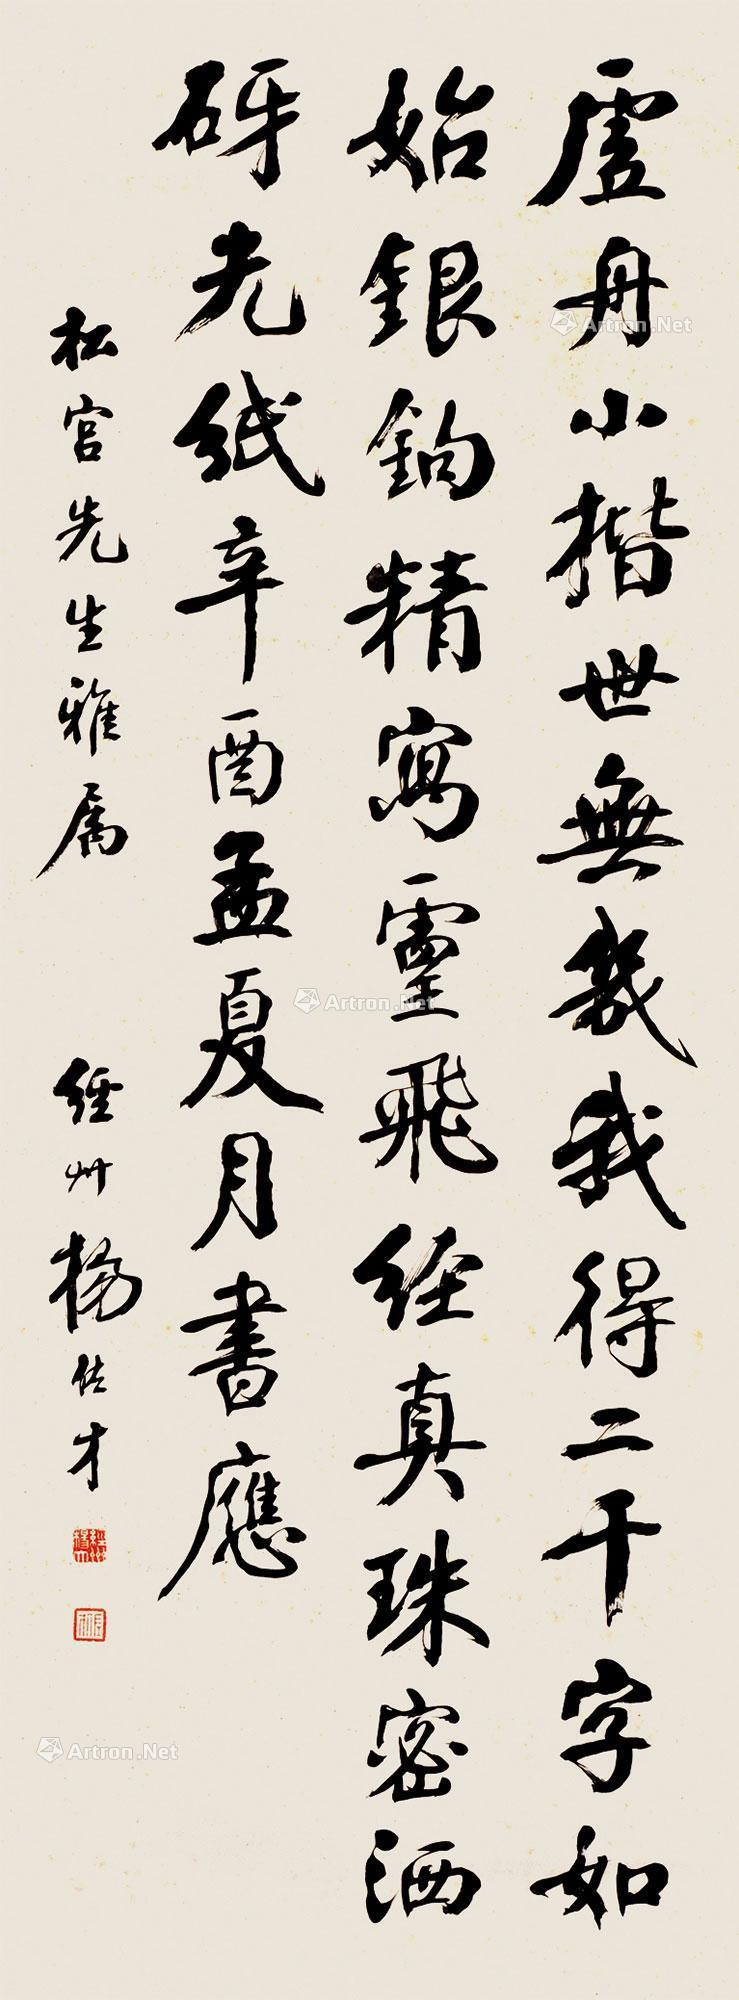 虛舟小楷世無幾我得二千字如
始銀鉤精寫靈飛經真珠密洒
砑光紙辛酉孟夏月書應
松宮先生雅属
經州楊佐才
Artron.Net
Artron.Net
Artron.Net